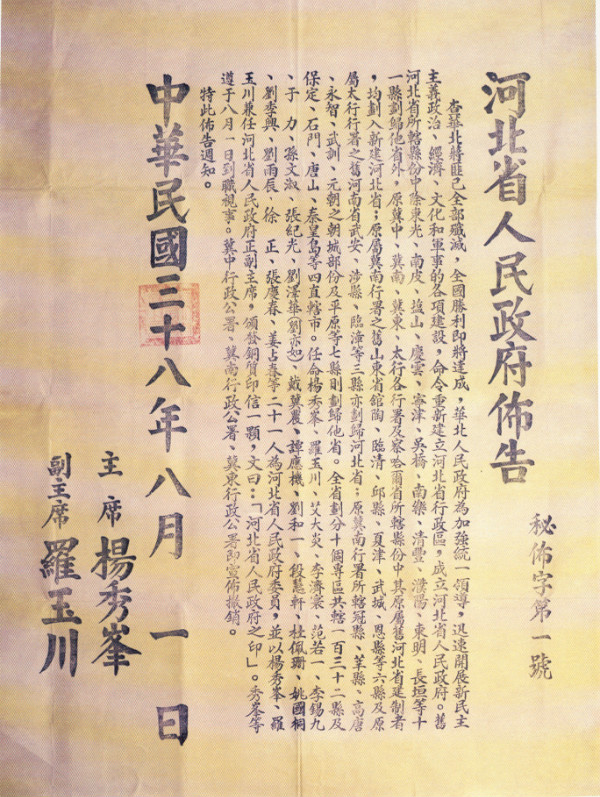 河北省人民政府佈告
秘佈字第一號
查華北蔣匪已全部殲滅，全國勝利即將達成，華北人民政府為加強統一領導，迅速開展新民主
主義政治、經濟、文化和軍事的各項建設，命令重新建立河北省行政區，成立河北省人民政府。舊
河北省所轄縣份中除東光、南皮、鹽山、慶雲、寧津、吳橋、南樂、清豐、濮陽、東明、長垣等十
一縣劃歸他省外，原冀中、冀南、冀東、太行各行署及察哈爾省所轄縣份中其原屬舊河北省建制者
，均劃入新建河北省；原屬冀南行署之舊山東省館陶、臨清、邱縣、夏津、武城、恩縣等六縣及原
屬太行行署之舊河南省武安、涉縣、臨漳等三縣亦劃歸河北省；原冀南行署所轄冠縣、莘縣、高唐
、永智、武訓、元朝之朝城部份及平原等七縣則劃歸他省。全省劃分十個專區共轄一百三十二縣及
保定、石門、唐山、秦皇島等四直轄市。任命楊秀峯、羅玉川、艾大炎、李濟寰、范若一、李錫九
、于　力、孫文淑、張紀光、劉澤華（劉亦如）、戴冀農、譚應機、劉和一、段慧軒、杜佩珊、姚國桐
、劉季興、劉雨辰、徐　正、張慶春、姜占春等二十一人為河北省人民政府委員，並以楊秀峯、羅
玉川兼任河北省人民政府正副主席，頒發銅質印信一顆，文曰：「河北省人民政府之印」。秀峯等
遵于八月一日到職視事。冀中行政公署、冀南行政公署、冀東行政公署即宣佈撤銷。
特此佈告通知。
中華民國三十八年八月一日
主席楊秀峯
副主席羅玉川